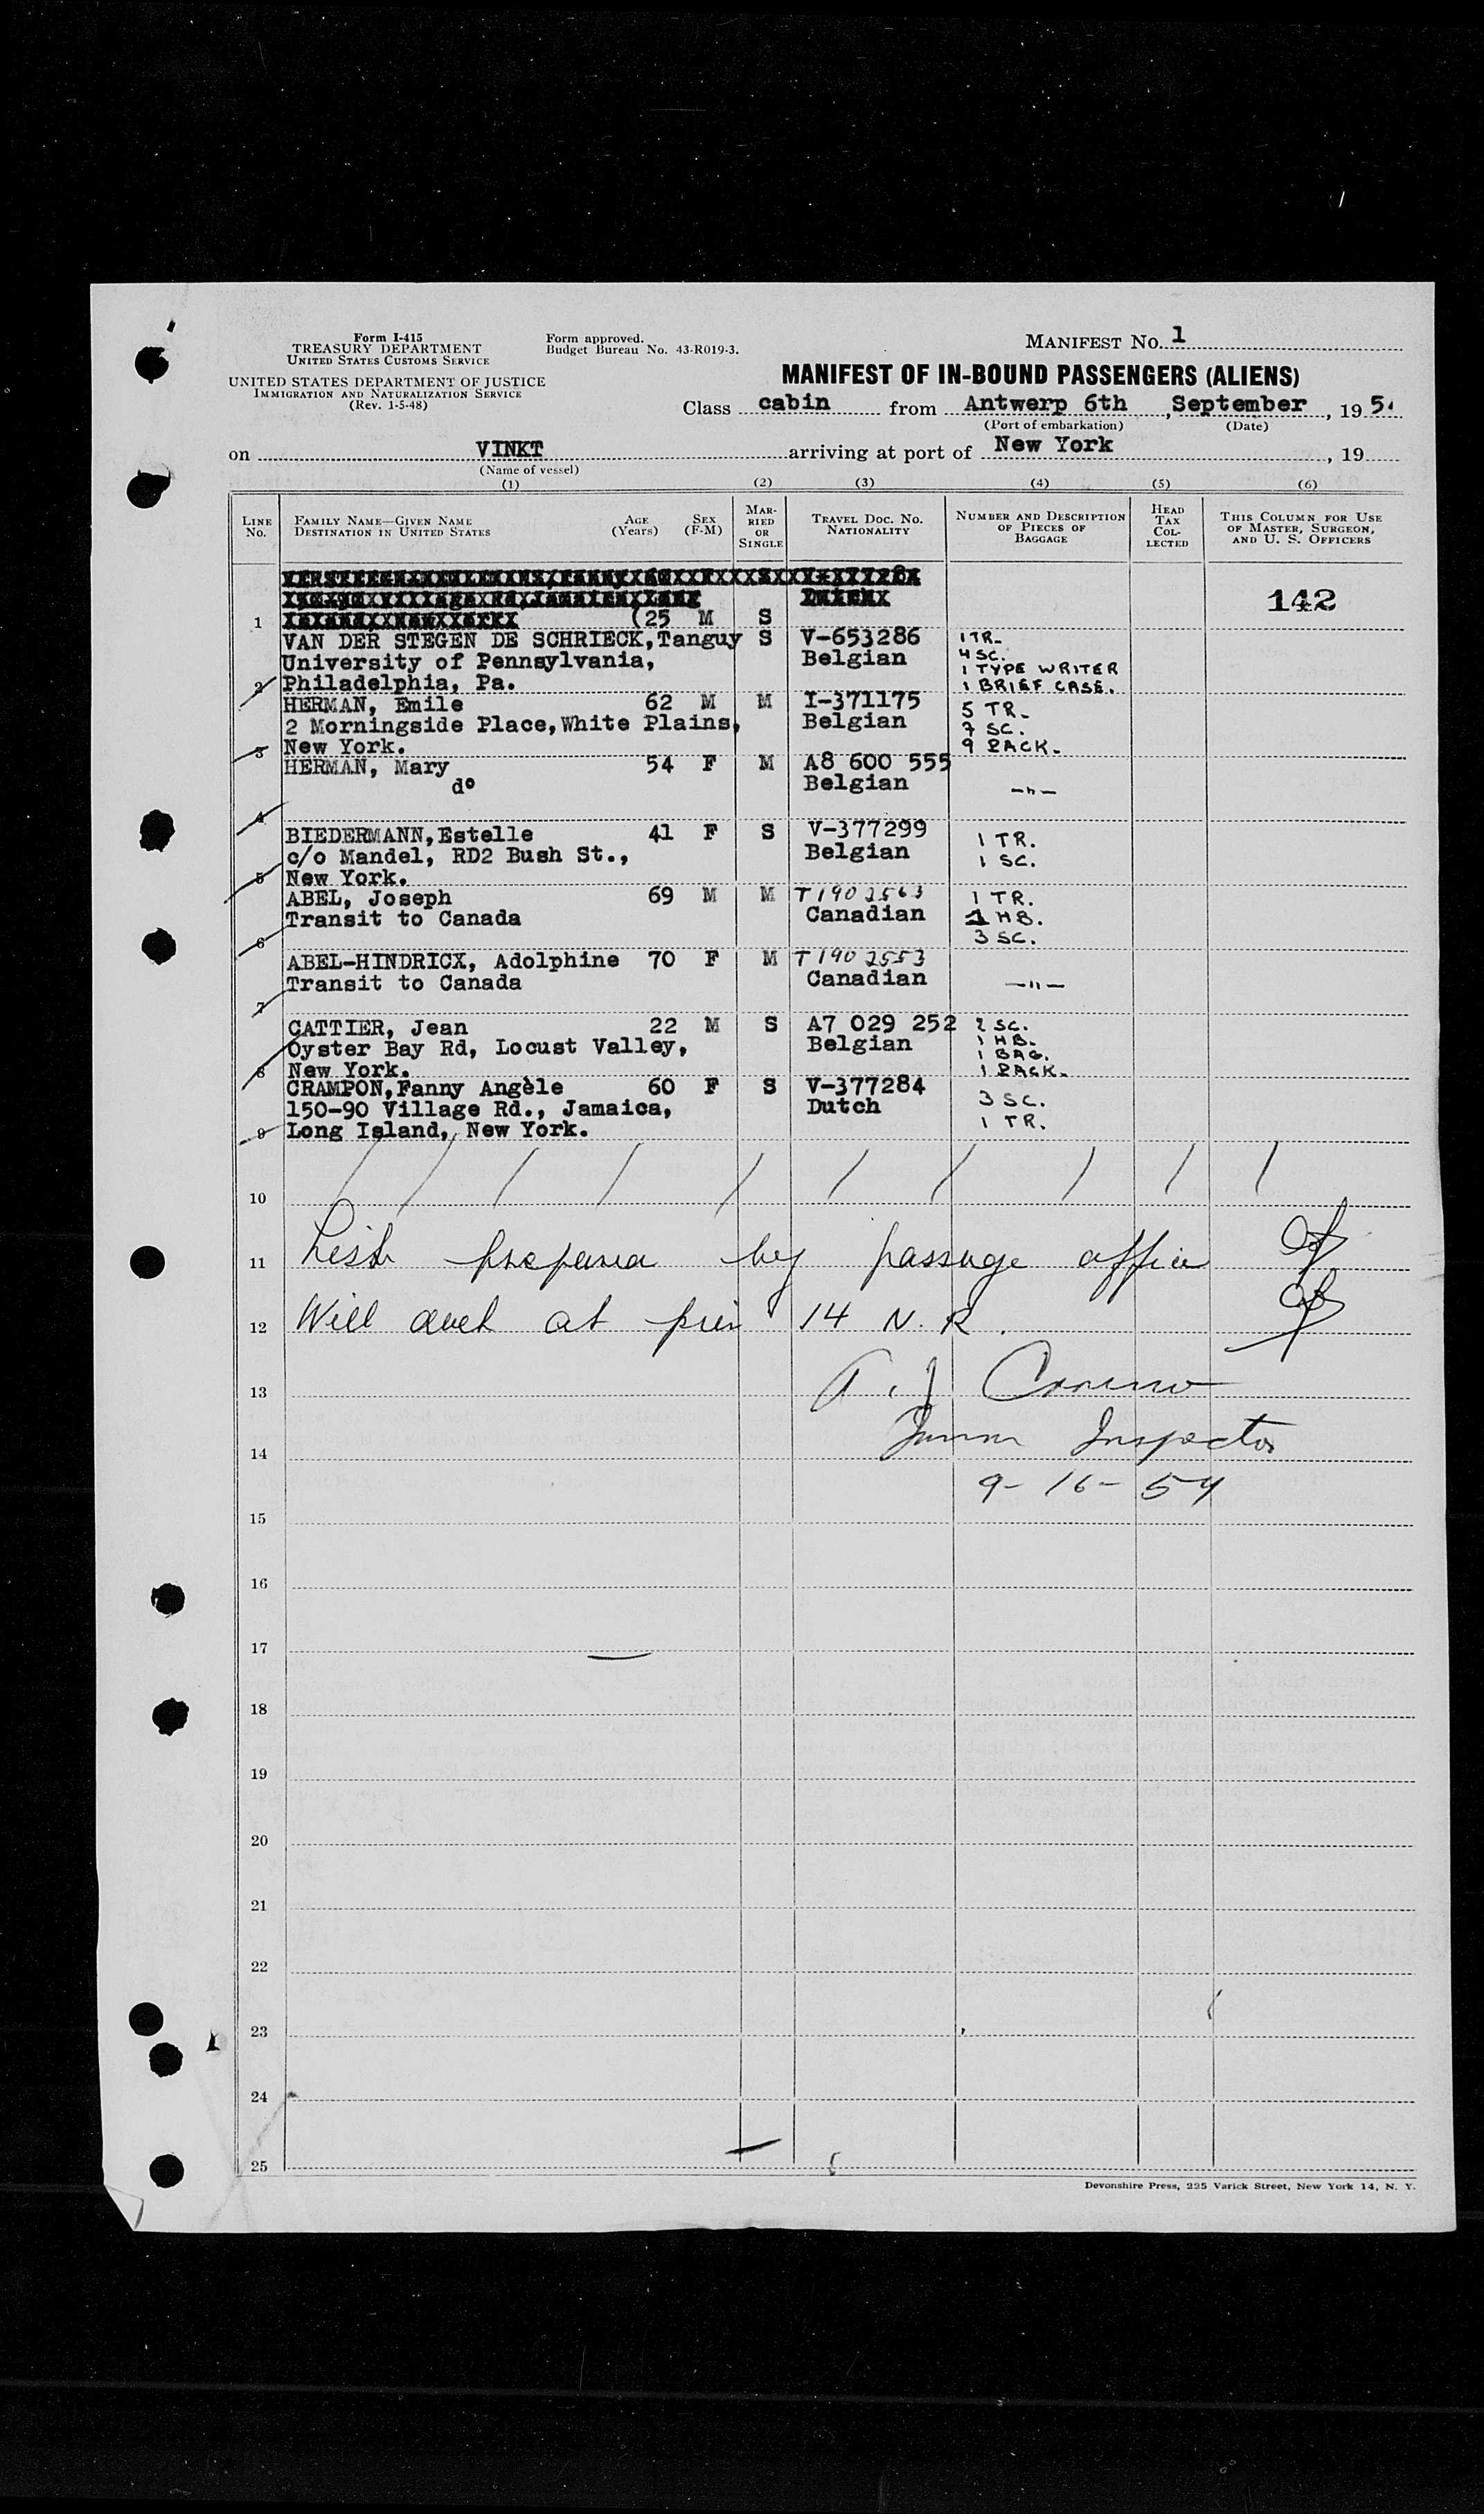 Form I-415
TREASURY DEPARTMENT
UNITED STATES CUSTOMS SERVICE
UNITED STATES DEPARTMENT OF JUSTICE
IMMIGRATION AND NATURALIZATION SERVICE
(Rev. 1-5-48)
Form approved.
Budget Bureau No. 43-R019-3.
MANIFEST No. 1
MANIFEST OF IN-BOUND PASSENGERS (ALIENS)
Class cabin from Antwerp 6th, September, 195
(Port of embarkation) (Date)
on VINKT arriving at port of New York, 19
(Name of vessel)
(1) (2) (3) (4) (5) (6)
LINE No. FAMILY NAME—GIVEN NAME DESTINATION IN UNITED STATES AGE (Years) SEX (F-M) MARRIED OR SINGLE TRAVEL DOC. NO. NATIONALITY NUMBER AND DESCRIPTION OF PIECES OF BAGGAGE HEAD TAX COLLECTED THIS COLUMN FOR USE OF MASTER, SURGEON, AND U. S. OFFICERS
142
1 (25 M S
VAN DER STEGEN DE SCHRIECK, Tanguy S V-653286 1 TR.
University of Pennsylvania, Belgian 4 SC.
1 TYPE WRITER
2 Philadelphia, Pa. 1 BRIEF CASE.
HERMAN, Emile 62 M M I-371175 5 TR.
2 Morningside Place, White Plains, Belgian 7 SC.
3 New York. 9 PACK.
HERMAN, Mary 54 F M A8 600 555
do Belgian —"—
4
BIEDERMANN, Estelle 41 F S V-377299 1 TR.
c/o Mandel, RD2 Bush St., Belgian 1 SC.
5 New York.
ABEL, Joseph 69 M M T1902563 1 TR.
Transit to Canada Canadian 1 HB.
6 3 SC.
ABEL-HINDRICX, Adolphine 70 F M T1902553
Transit to Canada Canadian —"—
7
CATTIER, Jean 22 M S A7 029 252 2 SC.
Oyster Bay Rd, Locust Valley, Belgian 1 HB.
1 BAG.
8 New York. 1 PACK.
CRAMPON, Fanny Angèle 60 F S V-377284 3 SC.
150-90 Village Rd., Jamaica, Dutch 1 TR.
9 Long Island, New York.
10
11 List by passage office
12 Will at pier 14 N. R.
13 A. J.
14 Inspector
9-16-54
15
16
17
18
19
20
21
22
23
24
25
Devonshire Press, 225 Varick Street, New York 14, N. Y.